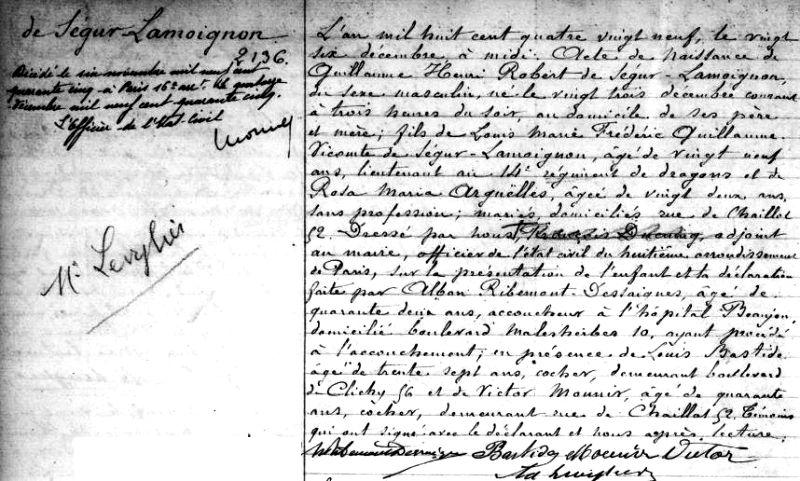 de Ségur-Lamoignon
2136.
Décédé le six novembre mil neuf cent
quarante cinq à Paris 16e arrt. Le quatorze
novembre mil neuf cent quarante cinq.
L'Officier de l'Etat Civil
Me Levylier
L'an mil huit cent quatre vingt neuf, le vingt
six décembre à midi. Acte de naissance de
Guillaume Henri Robert de Ségur-Lamoignon,
du sexe masculin, né le vingt trois décembre courant
à trois heures du soir, au domicile de ses père
et mère; fils de Louis Marie Frédéric Guillaume
Vicomte de Ségur-Lamoignon, âgé de vingt neuf
ans, lieutenant au 14e régiment de dragons et de
Rosa Maria Arguëlles, âgée de vingt deux ans,
sans profession; mariés, domiciliés rue de Chaillot
52. Dressé par nous, adjoint
au maire, officier de l'état civil du huitième arrondissement
de Paris, sur la présentation de l'enfant et la déclaration
faite par Alban Ribemont-Dessaignes, âgé de
quarante deux ans, accoucheur à l'hôpital Beaujon,
domicilié boulevard Malesherbes 10, ayant procédé
à l'accouchement; en présence de Louis Bastide
âgé de trente sept ans, cocher, demeurant boulevard
de Clichy 56 et de Victor Mounier, âgé de quarante
ans, cocher, demeurant rue de Chaillot 52. Témoins
qui ont signé avec le déclarant et nous après lecture;
Ribemont Dessaignes Bastide Mounier Victor